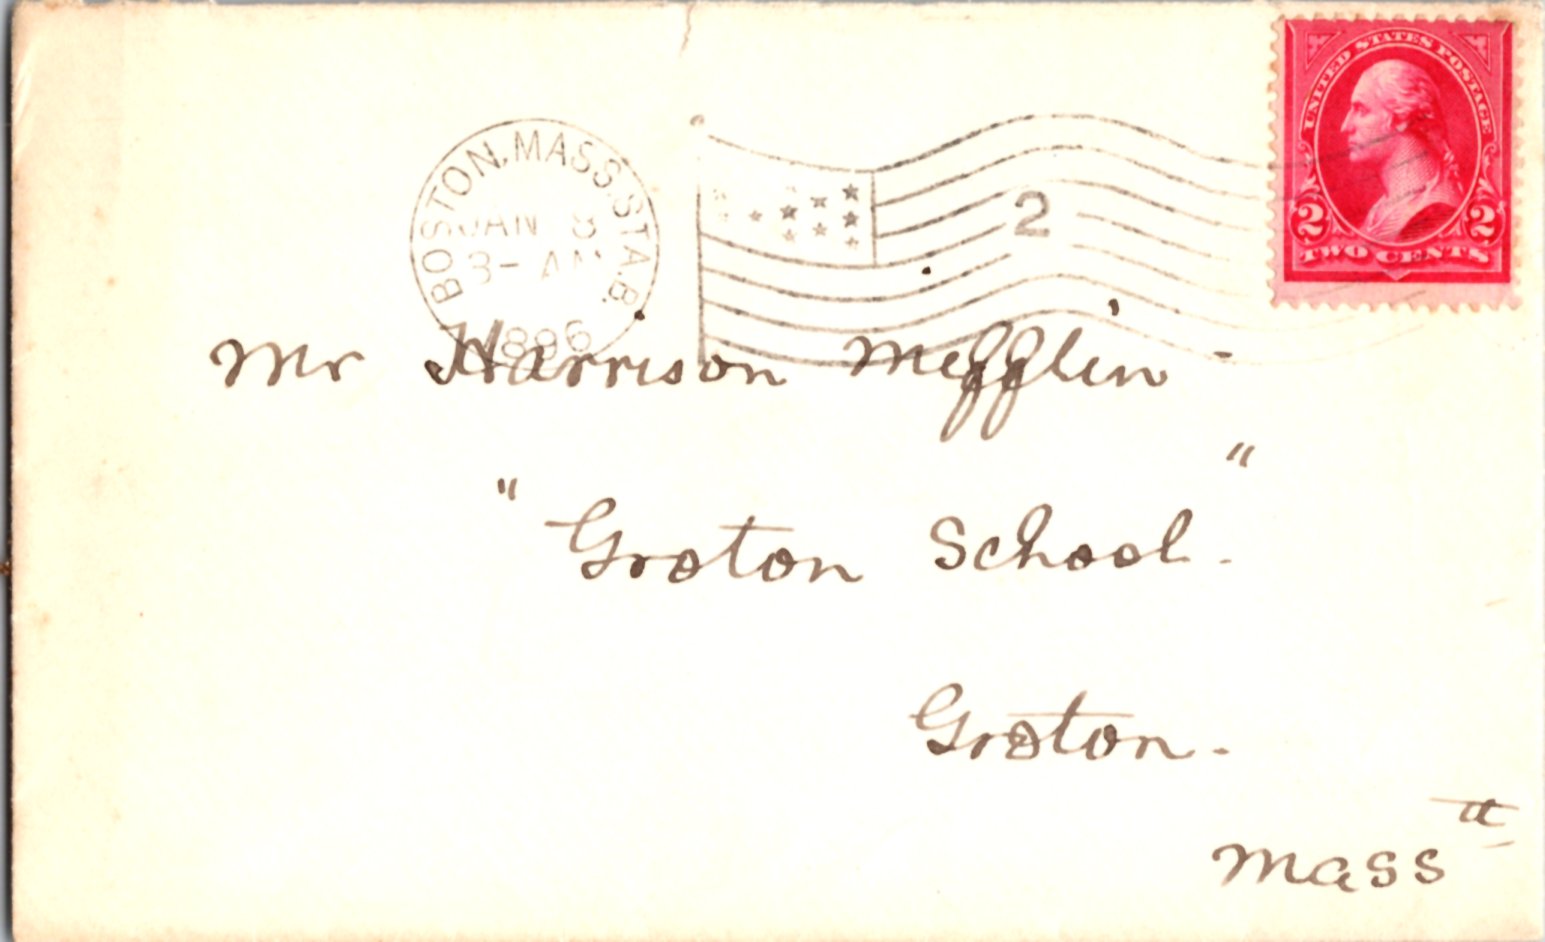 BOSTON, MASS. STA. B.
JAN 8
3- AM
1896
2
UNITED STATES POSTAGE
2 2
TWO CENTS
Mr Harrison Mifflin -
" Groton School. "
Groton -
Mass tt